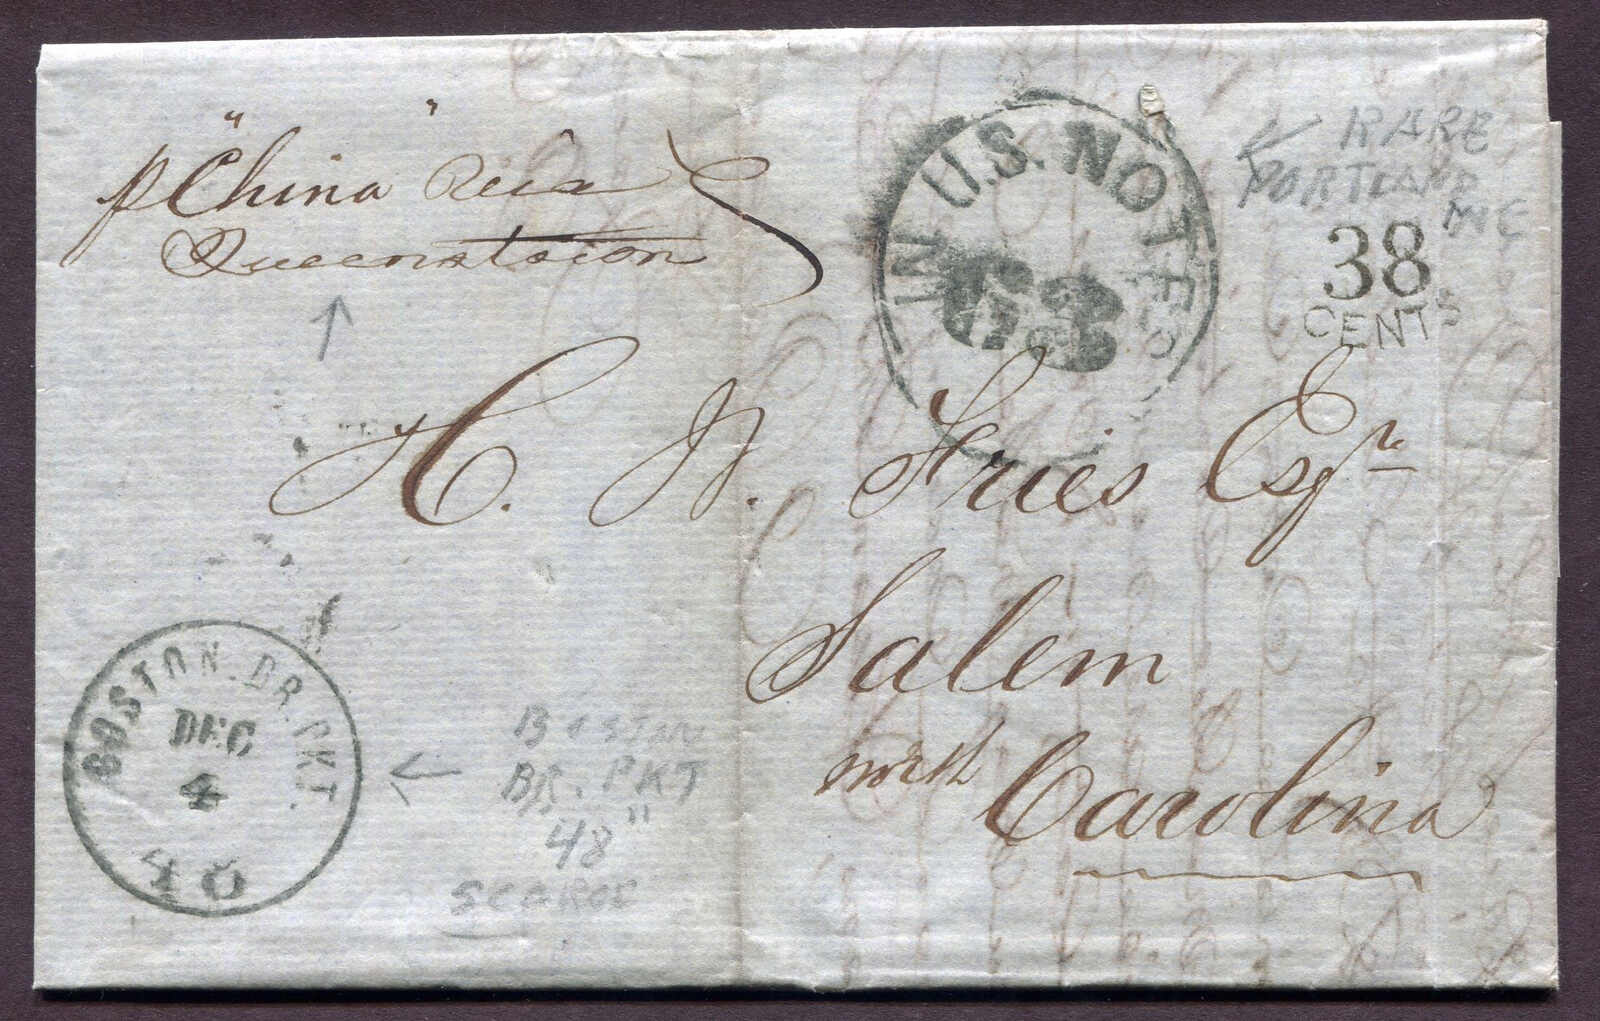 p "China" via
Queenstown
IN U.S. NOTES
63
RARE
PORTLAND
ME
38
CENTS
H. W. Fries Esqre
Salem
north
Carolina
BOSTON. BR. PKT.
DEC
4
48
BOSTON
BR. PKT
48"
SCARCE